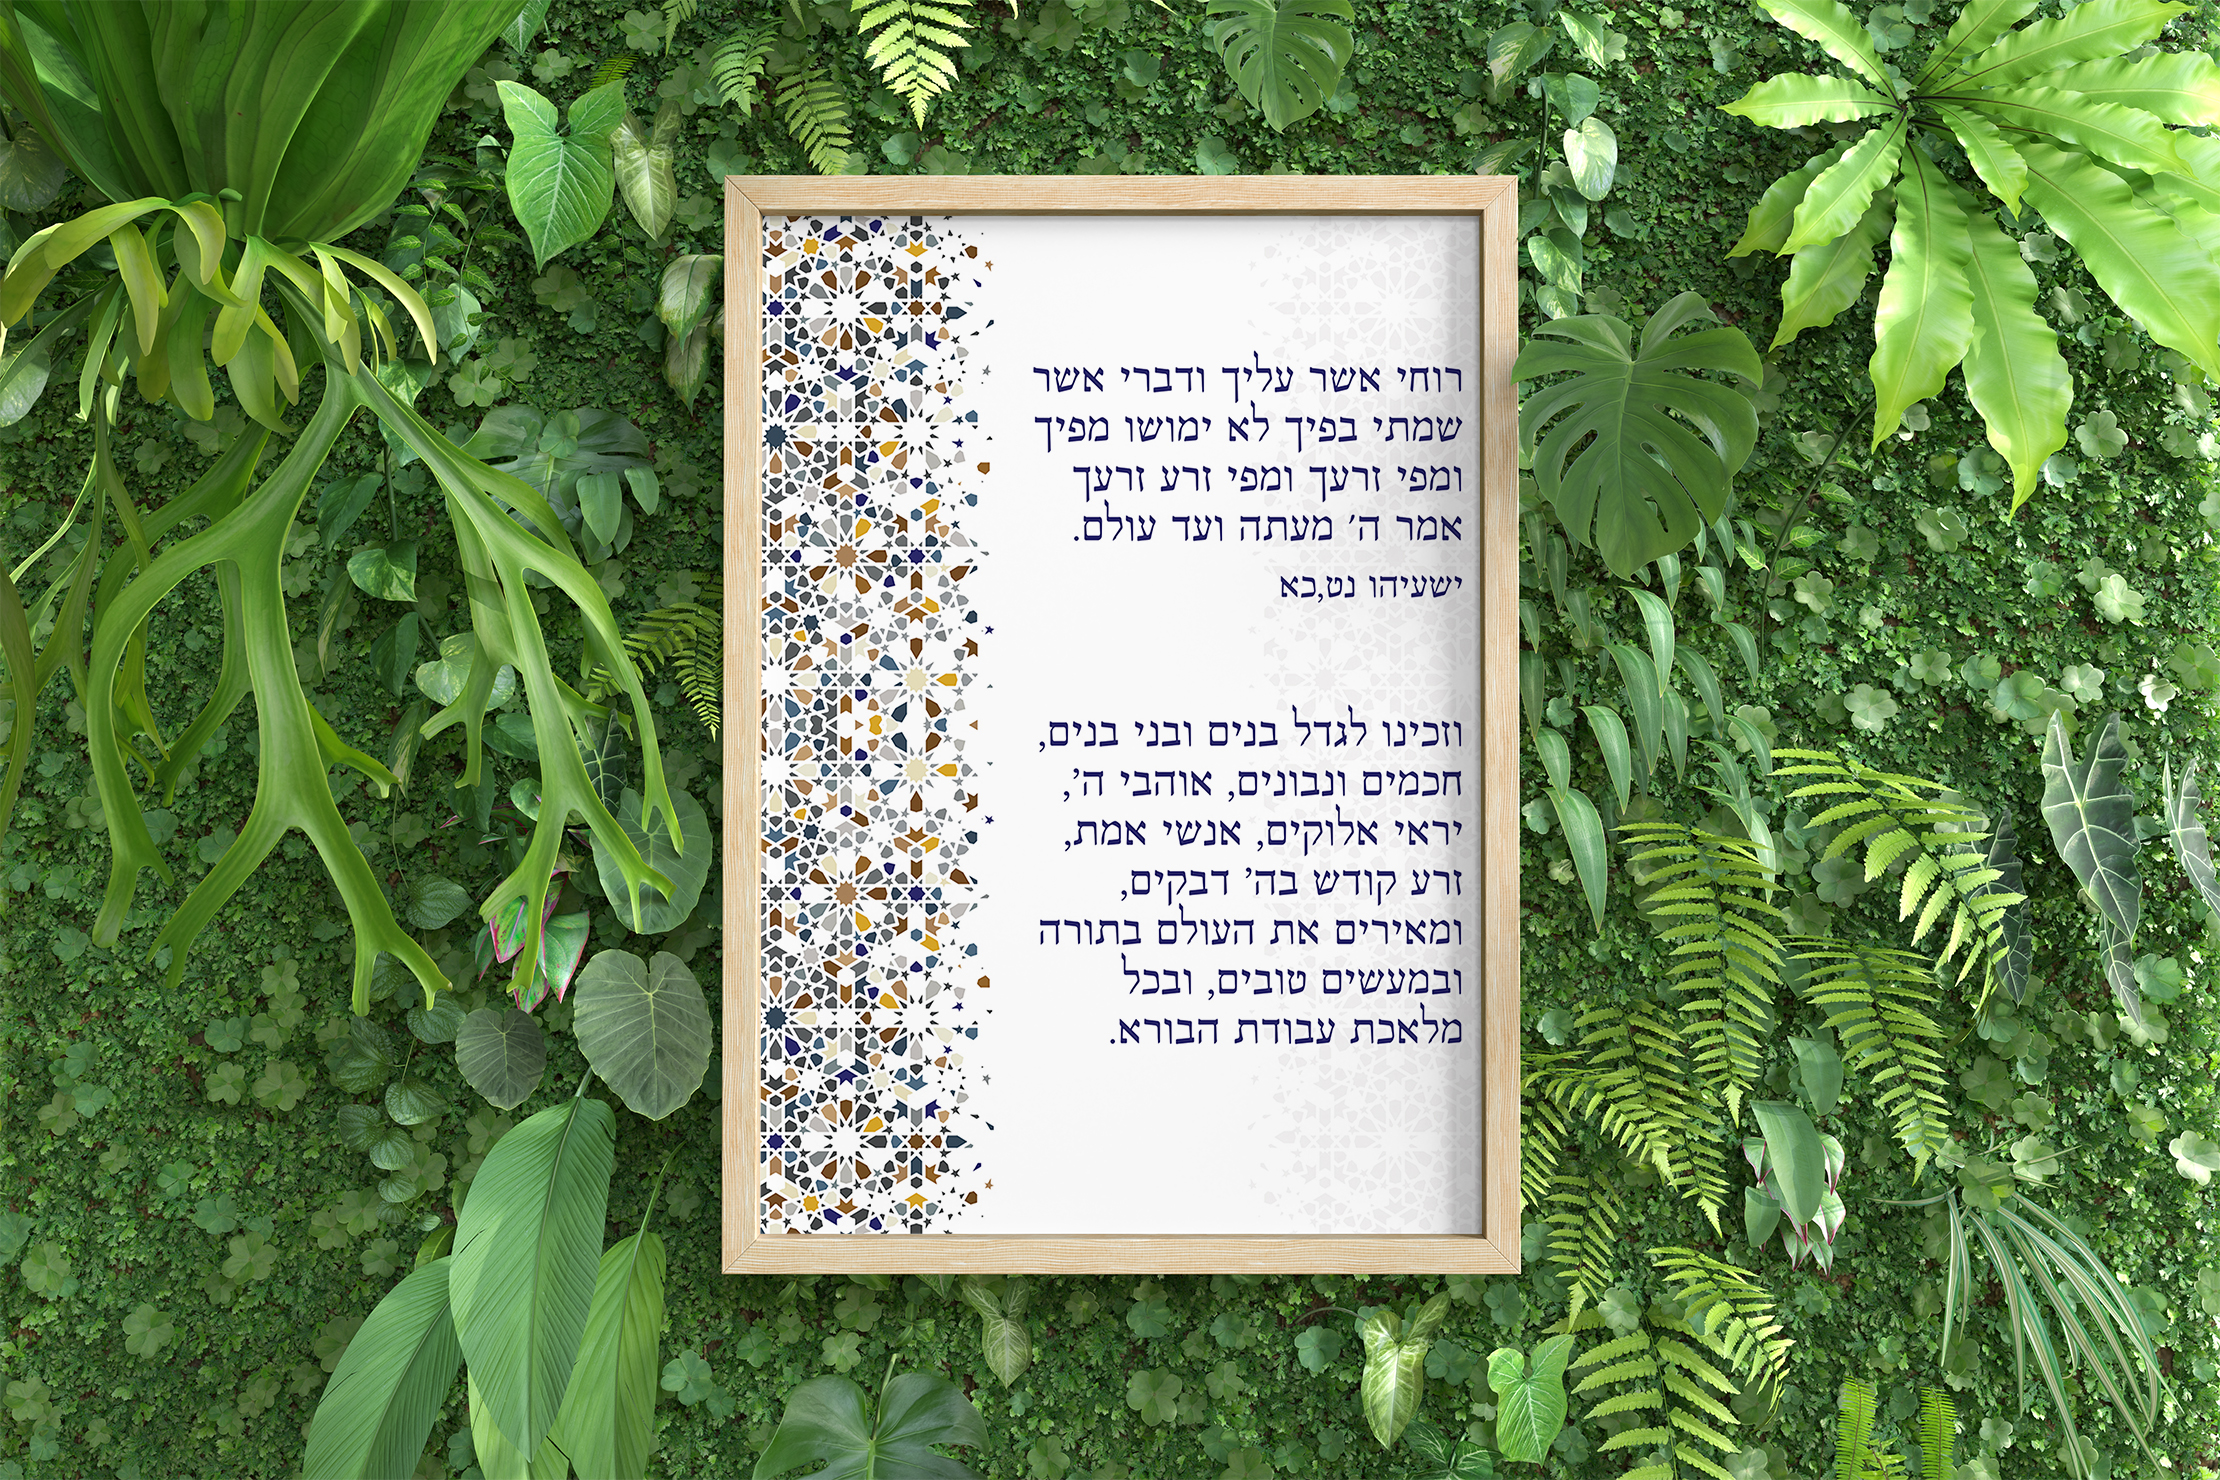 רוחי אשר עליך ודברי אשר
שמתי בפיך לא ימושו מפיך
ומפי זרעך ומפי זרע זרעך
אמר ה׳ מעתה ועד עולם.
ישעיהו נט,כא
וזכינו לגדל בנים ובני בנים,
חכמים ונבונים, אוהבי ה’,
יראי אלוקים, אנשי אמת,
זרע קודש בה’ דבקים,
ומאירים את העולם בתורה
ובמעשים טובים, ובכל
מלאכת עבודת הבורא.